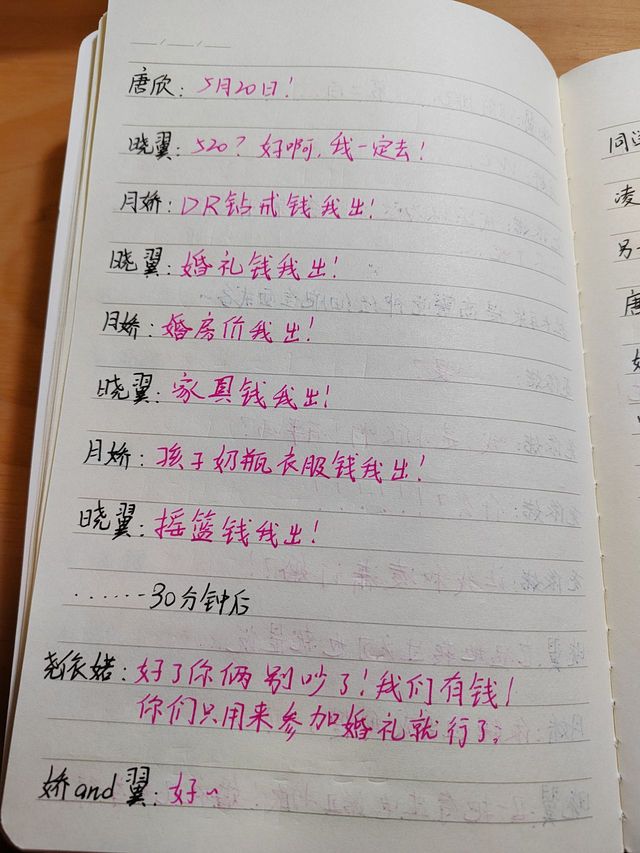 唐欣：5月20日！
晓翼：520？好啊，我一定去！
月娇：DR钻戒钱我出！
晓翼：婚礼钱我出！
月娇：婚房价我出！
晓翼：家具钱我出！
月娇：孩子奶瓶衣服钱我出！
晓翼：摇篮钱我出！
......30分钟后
尧依婼：好了你俩别吵了！我们有钱！
你们只用来参加婚礼就行了。
娇and翼：好~
同
凌
另一
唐